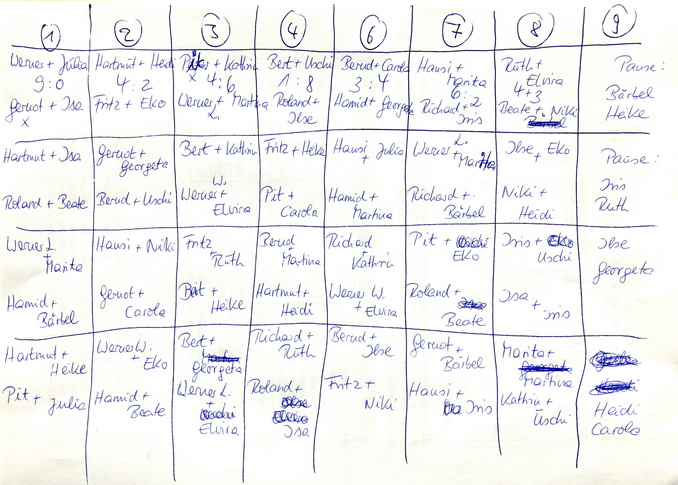 1 2 3 4 6 7 8 9
Werner + Julia
9:0
Gernot + Isa
x
Hartmut + Heidi
4:2
Fritz + Eko
Pit + Kathrin
x 4:6
Werner + Martina
L.
Bert + Uschi
1:8
Roland +
Ilse
Bernd + Carola
3:4
Hamid + Georgeta
Hansi +
Marita
6:2
Richard +
Iris
Ruth +
Elvira
4+3
Beate + Niki
Pause:
Bärbel
Heike
Hartmut + Isa
Roland + Beate
Gernot +
Georgeta
Bernd + Uschi
Bert + Kathrin
W.
Werner +
Elvira
Fritz + Heike
Pit +
Carola
Hansi
+ Julia
Hamid +
Martina
Werner L.
+ Marita
Richard +
Bärbel
Ilse + Eko
Niki +
Heidi
Pause:
Iris
Ruth
Werner L.
+ Marita
Hamid +
Bärbel
Hansi + Niki
Gernot +
Carola
Fritz
+ Ruth
+ Heike
Bernd
Martina
Hartmut +
Heidi
Richard
Kathrin
Werner W.
+ Elvira
Pit +
Eko
Roland +
Beate
Iris +
Uschi
Isa
+ Iris
Ilse
Georgeta
Hartmut +
Heike
Pit + Julia
Werner W.
+ Eko
Hamid +
Beate
Bert +
Georgeta
Werner L.
+
Elvira
Richard +
Ruth
Roland +
Isa
Bernd +
Ilse
Fritz +
Niki
Gernot +
Bärbel
Hansi +
Iris
Marita +
Martina
Kathrin +
Uschi
Heidi
Carola